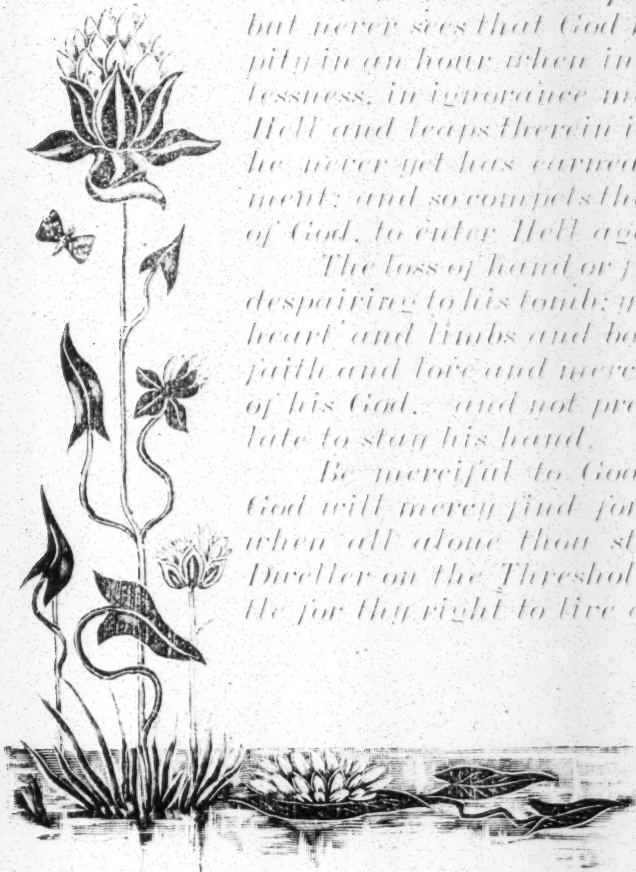 but never sees that God
pity in an hour when in
lessness, in ignorance
Hell and leaps therein
he never yet has earned
ment; and so compels the
of God, to enter Hell
The loss of hand or
despairing to his tomb;
heart and limbs and
faith and love and
of his God, and not
late to stay his hand.
Be merciful to God
God will mercy find for
when all alone thou
Dweller on the
tle for thy right to live